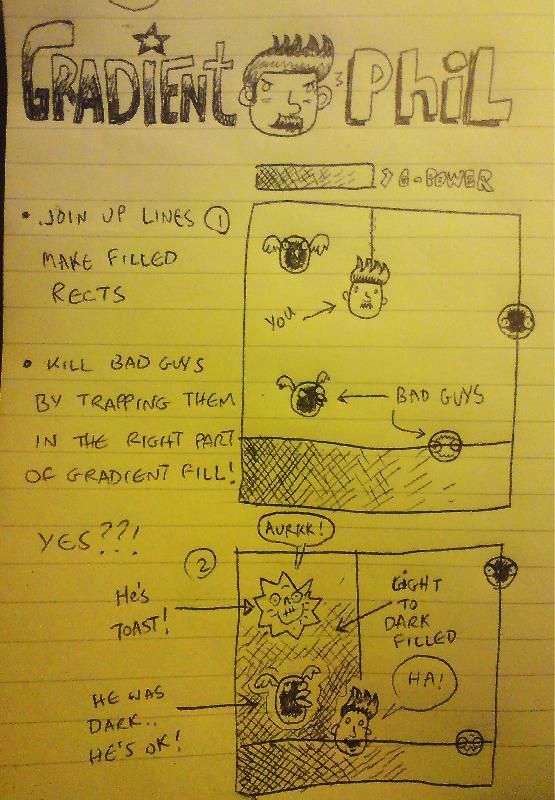 GRADIENT PHIL
G-POWER
• JOIN UP LINES ①
MAKE FILLED
RECTS
YOU
• KILL BAD GUYS
BY TRAPPING THEM
IN THE RIGHT PART
OF GRADIENT FILL!
BAD GUYS
YES??!
②
AURRK!
HE'S
TOAST!
LIGHT
TO
DARK
FILLED
HA!
HE WAS
DARK..
HE'S OK!